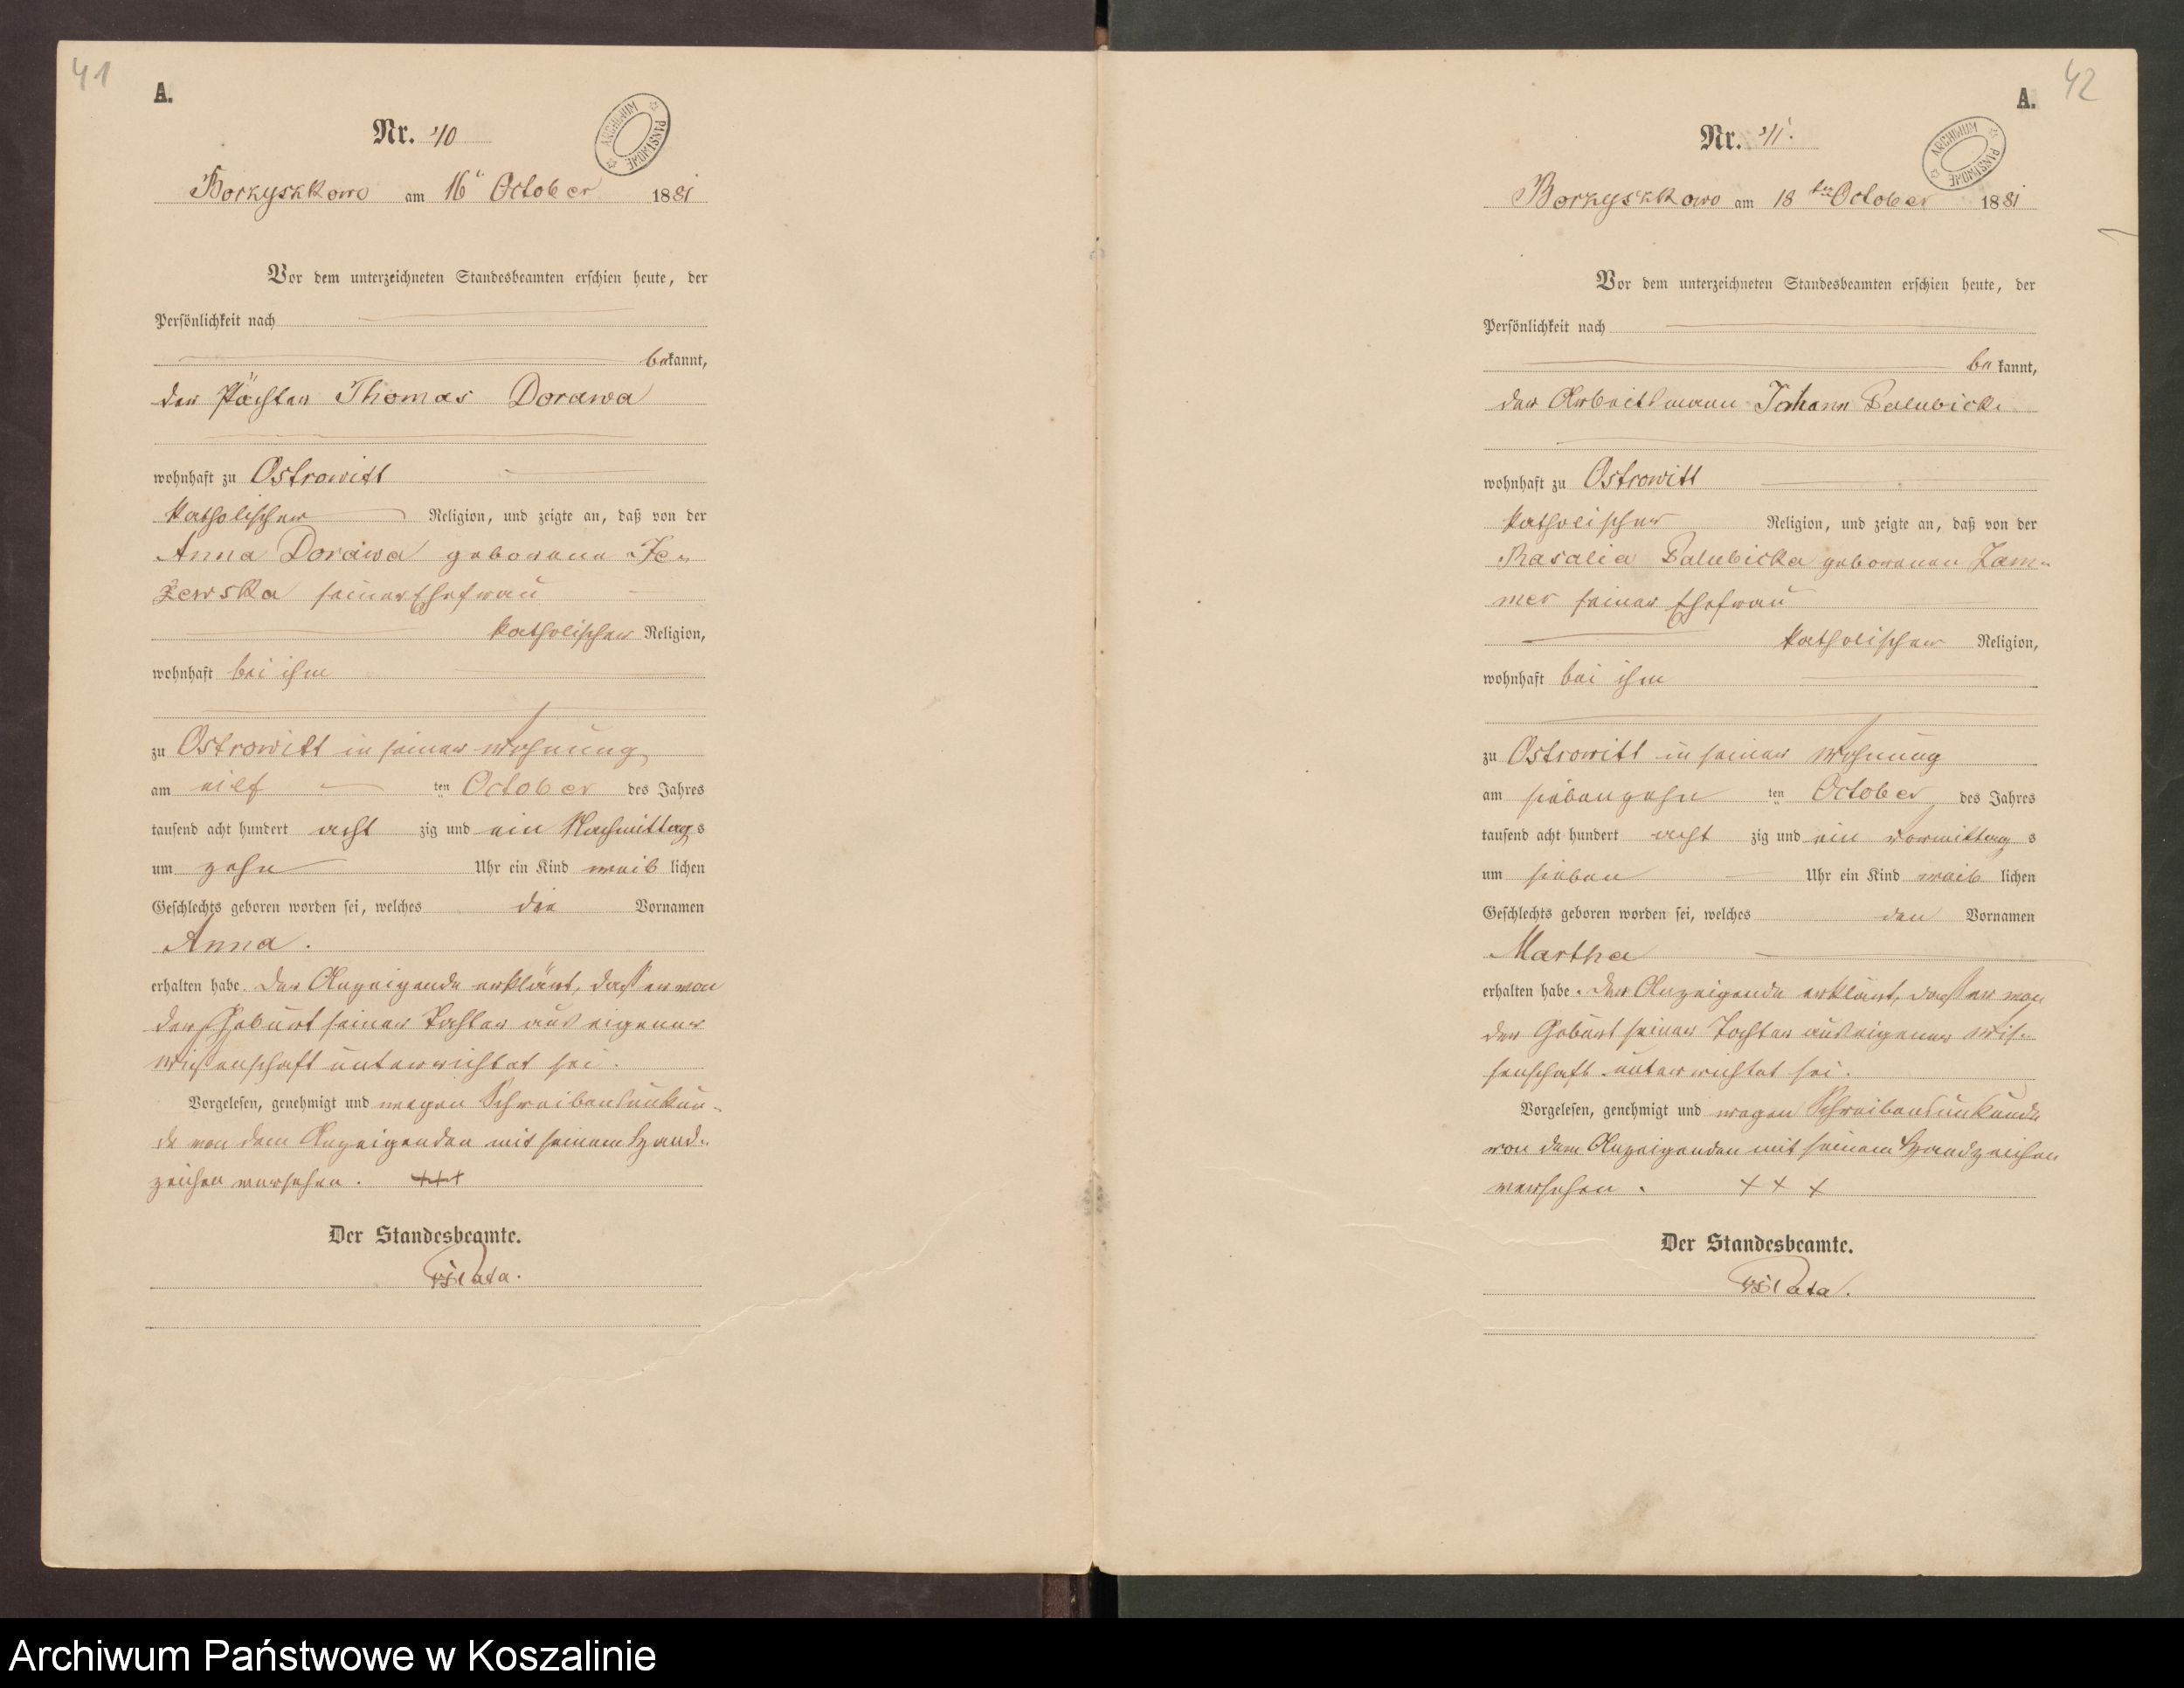 41
A.
Nr. 40
ARCHIWUM PAŃSTWOWE
Borzyszkowo am 16ᵗ October 1881
Vor dem unterzeichneten Standesbeamten erschien heute, der
Persönlichkeit nach
bekannt,
der Pächter Thomas Dorawa
wohnhaft zu Ostrowitt
katholischer Religion, und zeigte an, daß von der
Anna Dorawa geborene Je-
żewska seiner Ehefrau
katholischer Religion,
wohnhaft bei ihm
zu Ostrowitt in seiner Wohnung
am eilf ten October des Jahres
tausend acht hundert acht zig und ein Nachmittags
um zehn Uhr ein Kind weib lichen
Geschlechts geboren worden sei, welches die Vornamen
Anna.
erhalten habe. Der Anzeigende erklärt, daß er von
der Geburt seiner Tochter aus eigener
Wißenschaft unterrichtet sei.
Vorgelesen, genehmigt und wegen Schreibensunkun-
de von dem Anzeigenden mit seinem Hand-
zeichen versehen. +++
Der Standesbeamte.
42
A.
Nr. 41.
ARCHIWUM PAŃSTWOWE
Borzyszkowo am 18 ten October 1881
Vor dem unterzeichneten Standesbeamten erschien heute, der
Persönlichkeit nach
be kannt,
der Arbeitsmann Johann Palubicki
wohnhaft zu Ostrowitt
katholischer Religion, und zeigte an, daß von der
Rosalia Palubicka geborenen Zam-
mer seiner Ehefrau
katholischer Religion,
wohnhaft bei ihm
zu Ostrowitt in seiner Wohnung
am siebenzehn ten October des Jahres
tausend acht hundert acht zig und ein Vormittag s
um sieben Uhr ein Kind weib lichen
Geschlechts geboren worden sei, welches den Vornamen
Martha
erhalten habe. Der Anzeigende erklärt, daß er von
der Geburt seiner Tochter aus eigener Wis-
senschaft unterrichtet sei.
Vorgelesen, genehmigt und wegen Schreibensunkunde
von dem Anzeigenden mit seinem Handzeichen
versehen. + + +
Der Standesbeamte.
Archiwum Państwowe w Koszalinie